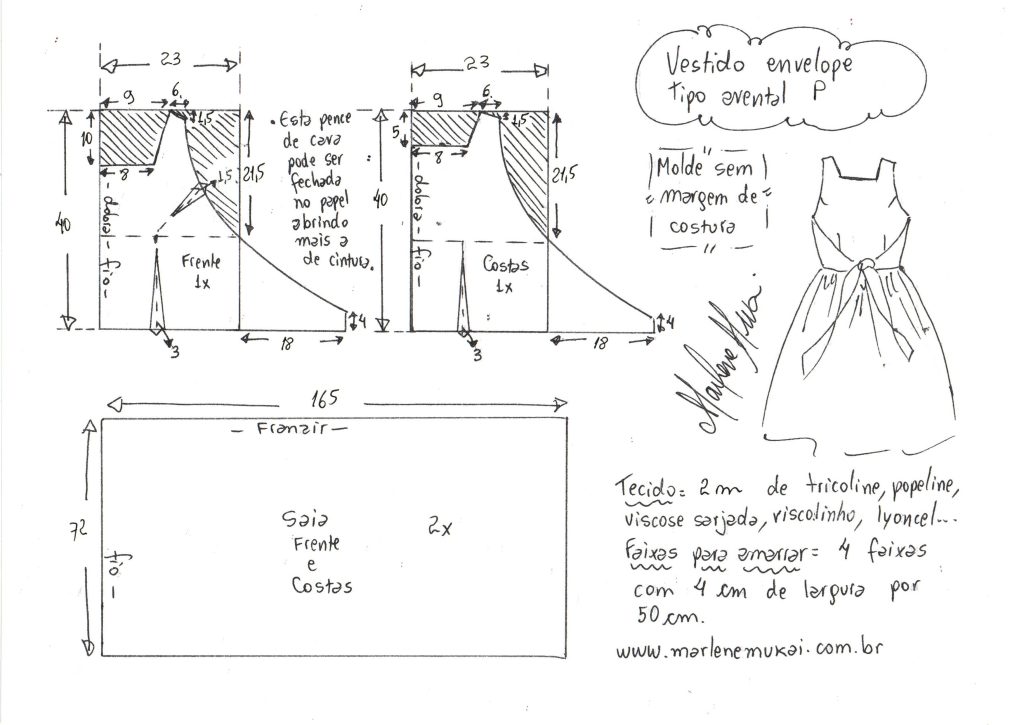 Vestido envelope
tipo avental P
" Molde sem
margem de
costura "
23
9
6
1,5
10
8
40
1,5
21,5
dobra - fio
Frente
1x
3
18
4
. Esta pence
de cava
pode ser
fechada
no papel
abrindo
mais a
de cintura.
23
9
6
1,5
5
8
40
21,5
dobra - fio
Costas
1x
3
18
4
165
- Franzir -
72
fio -
Saia
Frente
e
Costas
2x
Marlene Mukai.
Tecido = 2m de tricoline, popeline,
viscose sarjada, viscolinho, lyoncel...
Faixas para amarrar = 4 faixas
com 4 cm de largura por
50 cm.
www.marlenemukai.com.br